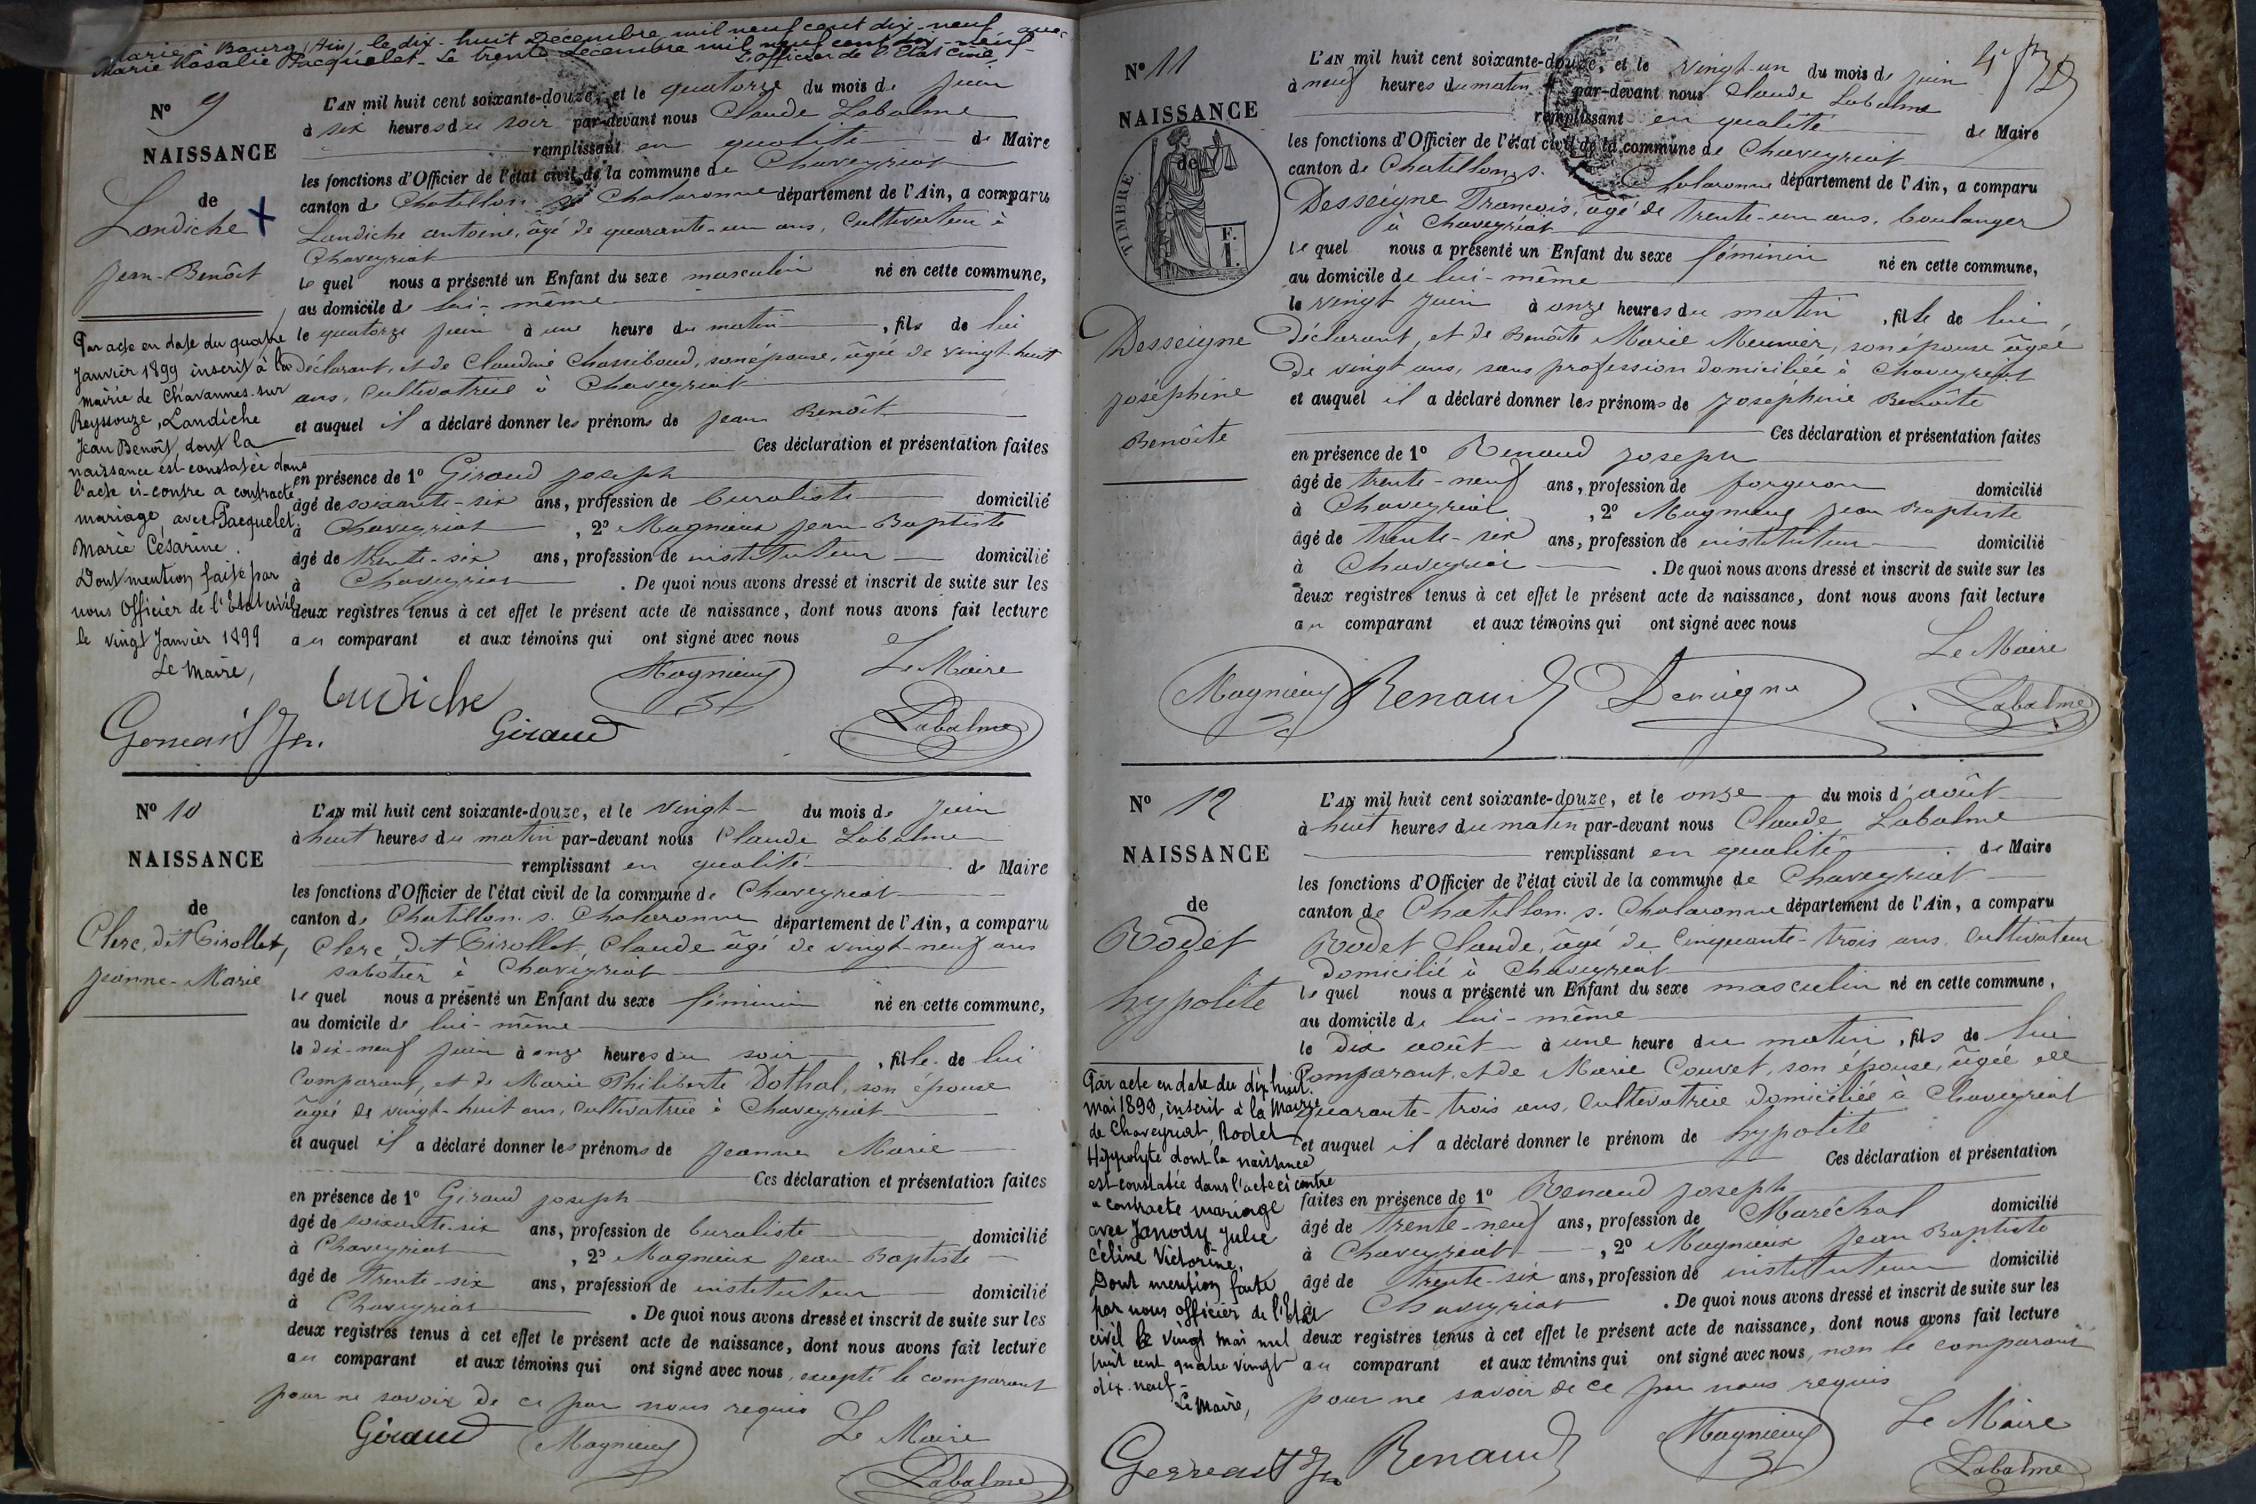 Marié à Bourg (Ain) le dix-huit Décembre mil neuf cent dix-neuf avec
Marie Rosalie Pacquelet. Le trente décembre mil neuf cent dix-neuf
L'officier de l'état civil,
N° 9
NAISSANCE
de
Landiche
Jean-Benoît
Par acte en date du quatre
Janvier 1899 inscrit à la
mairie de Chavannes-sur
Reyssouze, Landiche
Jean Benoît, dont la
naissance est constatée dans
l'acte ci-contre a contracté
mariage avec Pacquelet
Marie Césarine.
Dont mention faite par
nous Officier de l'Etat civil
le vingt Janvier 1899
Le Maire,
L'AN mil huit cent soixante-douze, et le quatorze du mois de juin
à six heures du soir par-devant nous Claude Labalme
remplissant en qualité de Maire
les fonctions d'Officier de l'état civil de la commune de Chaveyriat
canton de Chatillon s. Chalaronne département de l'Ain, a comparu
Landiche antoine, âgé de quarante-un ans, Cultivateur à
Chaveyriat
le quel nous a présenté un Enfant du sexe masculin né en cette commune,
au domicile de lui-même
le quatorze juin à une heure du matin, fils de lui
déclarant, et de Claudine Chassiboud, son épouse, âgée de vingt-huit
ans, Cultivatrice à Chaveyriat
et auquel il a déclaré donner les prénoms de jean Benoît
Ces déclaration et présentation faites
en présence de 1° Giraud joseph
âgé de soixante-six ans, profession de buraliste domicilié
à Chaveyriat, 2° Magnieux jean-Baptiste
âgé de trente-six ans, profession de instituteur domicilié
à Chaveyriat. De quoi nous avons dressé et inscrit de suite sur les
deux registres tenus à cet effet le présent acte de naissance, dont nous avons fait lecture
au comparant et aux témoins qui ont signé avec nous
Le Maire
Landiche Magnieux
Giraud Labalme
N° 10
NAISSANCE
de
Clerc, dit Girollet,
jeanne-Marie
L'AN mil huit cent soixante-douze, et le vingt du mois de juin
à huit heures du matin par-devant nous Claude Labalme
remplissant en qualité de Maire
les fonctions d'Officier de l'état civil de la commune de Chaveyriat
canton de Chatillon s. Chalaronne département de l'Ain, a comparu
Clerc, dit Girollet, Claude âgé de vingt neuf ans
sabotier à Chaveyriat
le quel nous a présenté un Enfant du sexe féminin né en cette commune,
au domicile de lui-même
le dix-neuf juin à onze heures du soir, fille de lui
Comparant, et de Marie Philiberte Dothal, son épouse
âgée de vingt-huit ans, Cultivatrice à Chaveyriat
et auquel il a déclaré donner les prénoms de jeanne Marie
Ces déclaration et présentation faites
en présence de 1° Giraud joseph
âgé de soixante-six ans, profession de buraliste domicilié
à Chaveyriat, 2° Magnieux jean-Baptiste
âgé de trente-six ans, profession de instituteur domicilié
à Chaveyriat. De quoi nous avons dressé et inscrit de suite sur les
deux registres tenus à cet effet le présent acte de naissance, dont nous avons fait lecture
au comparant et aux témoins qui ont signé avec nous, excepté le comparant
pour ne savoir de ce par nous requis
Le Maire
Giraud Magnieux Labalme
N° 11
NAISSANCE
de
TIMBRE
F.
I.
Desseigne
joséphine
Benoîte
L'AN mil huit cent soixante-douze, et le vingt-un du mois de juin
à neuf heures du matin par-devant nous Claude Labalme
remplissant en qualité de Maire
les fonctions d'Officier de l'état civil de la commune de Chaveyriat
canton de Chatillon s. Chalaronne département de l'Ain, a comparu
Desseigne François, âgé de trente-un ans, boulanger
à Chaveyriat
le quel nous a présenté un Enfant du sexe féminin né en cette commune,
au domicile de lui-même
le vingt juin à onze heures du matin, fille de lui,
déclarant, et de Benoîte Marie Meunier, son épouse âgée
de vingt ans, sans profession domiciliée à Chaveyriat
et auquel il a déclaré donner les prénoms de joséphine Benoîte
Ces déclaration et présentation faites
en présence de 1° Renaud joseph
âgé de trente-neuf ans, profession de forgeron domicilié
à Chaveyriat, 2° Magnieux jean Baptiste
âgé de trente-six ans, profession de instituteur domicilié
à Chaveyriat. De quoi nous avons dressé et inscrit de suite sur les
deux registres tenus à cet effet le présent acte de naissance, dont nous avons fait lecture
au comparant et aux témoins qui ont signé avec nous
Le Maire
Magnieux Renaud Desseigne Labalme
N° 12
NAISSANCE
de
Rodet
hypolite
Par acte en date du dix huit
mai 1899, inscrit à la Mairie
de Chaveyriat, Rodet
Hippolyte dont la naissance
est constatée dans l'acte ci contre
a contracté mariage
avec Janody Julie
Céline Victorine.
Dont mention faite
par nous officier de l'Etat
civil le vingt mai mil
huit cent quatre vingt
dix-neuf.
Le Maire,
L'AN mil huit cent soixante-douze, et le onze du mois d'août
à huit heures du matin par-devant nous Claude Labalme
remplissant en qualité de Maire
les fonctions d'Officier de l'état civil de la commune de Chaveyriat
canton de Chatillon s. Chalaronne département de l'Ain, a comparu
Rodet Claude, âgé de Cinquante-trois ans, Cultivateur
Domicilié à Chaveyriat
le quel nous a présenté un Enfant du sexe masculin né en cette commune,
au domicile de lui-même
le dix août à une heure du matin, fils de lui
Comparant, et de Marie Couvet, son épouse, âgée de
quarante-trois ans, Cultivatrice domiciliée à Chaveyriat
et auquel il a déclaré donner le prénom de hypolite
Ces déclaration et présentation
faites en présence de 1° Renaud joseph
âgé de trente-neuf ans, profession de Maréchal domicilié
à Chaveyriat, 2° Magnieux jean Baptiste
âgé de trente-six ans, profession de instituteur domicilié
à Chaveyriat. De quoi nous avons dressé et inscrit de suite sur les
deux registres tenus à cet effet le présent acte de naissance, dont nous avons fait lecture
au comparant et aux témoins qui ont signé avec nous, non le comparant
pour ne savoir de ce par nous requis
Le Maire
Renaud Magnieux Labalme